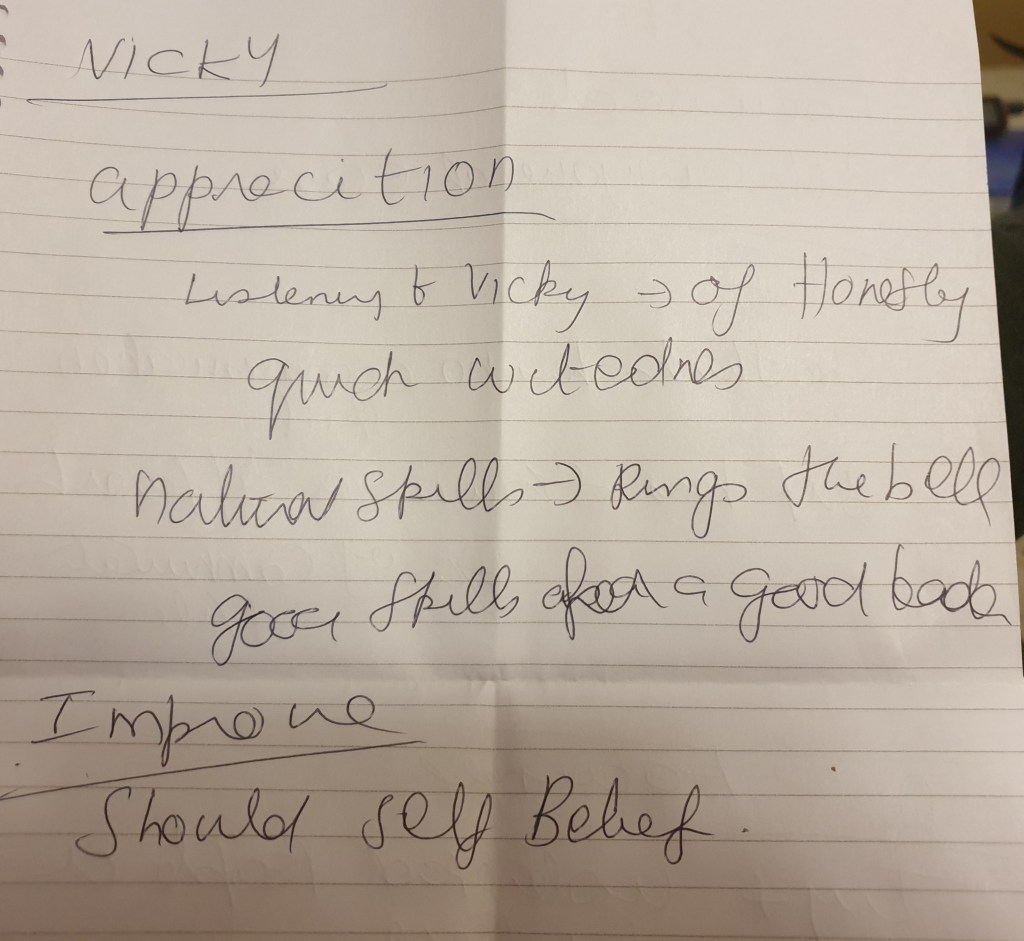 NICKY
apprecition
Listening to Vicky → of Honestly
quick witednes
Natural Skills → Rings the bell
good Skills of a good book
Improve
Should self Belief.